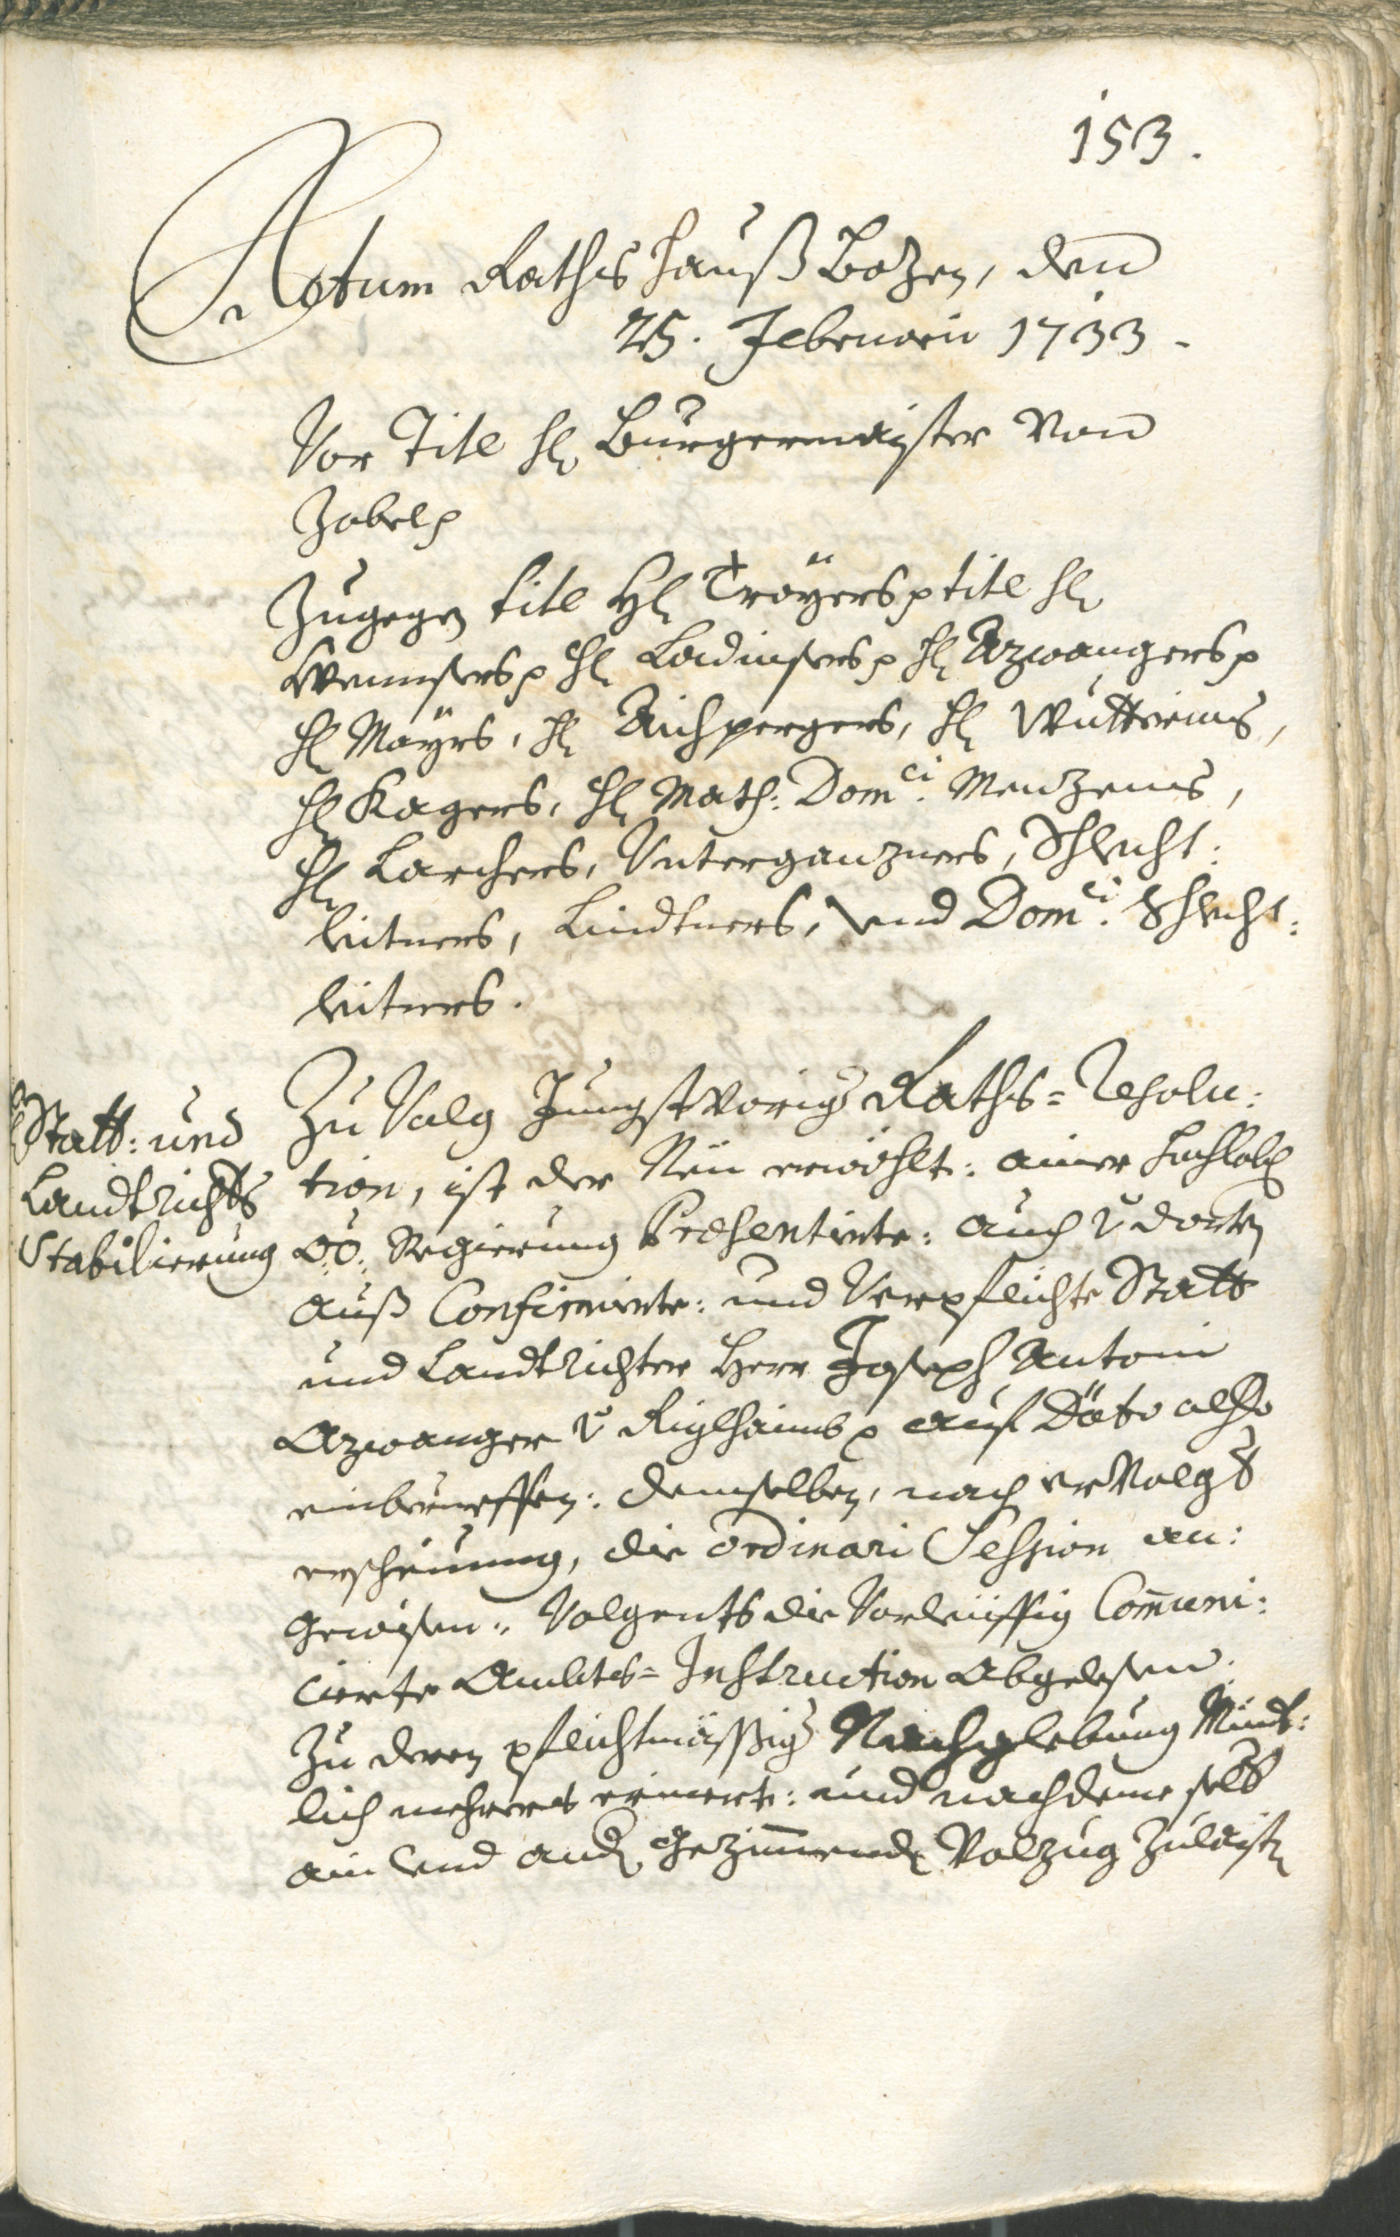 153.
Actum Raths hauß Bozen, den
25. Februarii 1733.
Vor Titl Hl Burgermaister von
Zobel p
Zugegen titl Hl Troÿers p titl Hl
Wennsers p Hl Ladinsers p Hl Azwangers p
Hl Maÿrs, Hl Aichpergers, Hl
Hl Kagers, Hl Math: Dom.ci Menzens,
Hl Larchers, Untergänzners, Schlecht:
leitners, Lindtners, und Dom.ci Schlecht:
leitners.
Statt: und
Landtrichts
Stabilierung
Zu Volg Jungst vorig Raths= Resolu:
tion, ist der Neu erwöhlt: ainer hochlobl
OÖ. Regierung Presentirte: auch v dorten
auß Confirmirte: und Verpflichte Statt
und Landtrichter Herr Joseph Antoni
Azwanger v Riglhaimb p auf Däto alhero
einberueffen: demselben, nach ervolgt
erscheinung, die ordinari Session an:
gewisen: Volgents die Vorleüffig Com̅uni:
cierte Ambts= Instruction abgelesen:
Zu deren pflichtmässig Nachglebung Mindt:
lich mehrers erinnert: und nachdeme selb
ain und and gezimende Volzug zulaisten